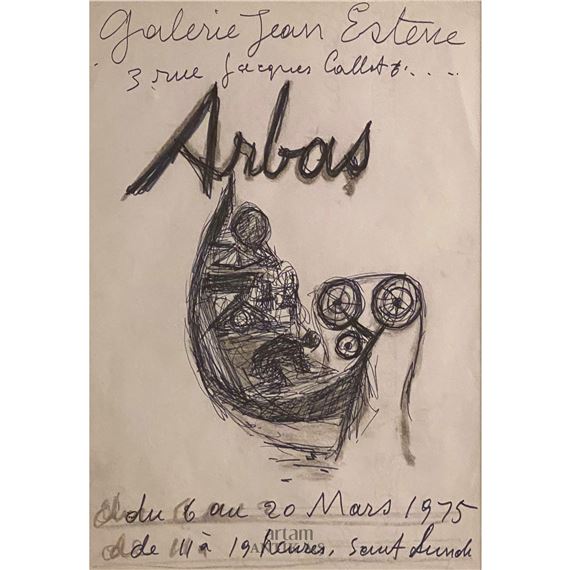 Galerie Jean Estève
3 rue Jacques Callot 6....
Arbaş
du 6 au 20 Mars 1975
artam
de 11 à 19 heures, sauf Lundi